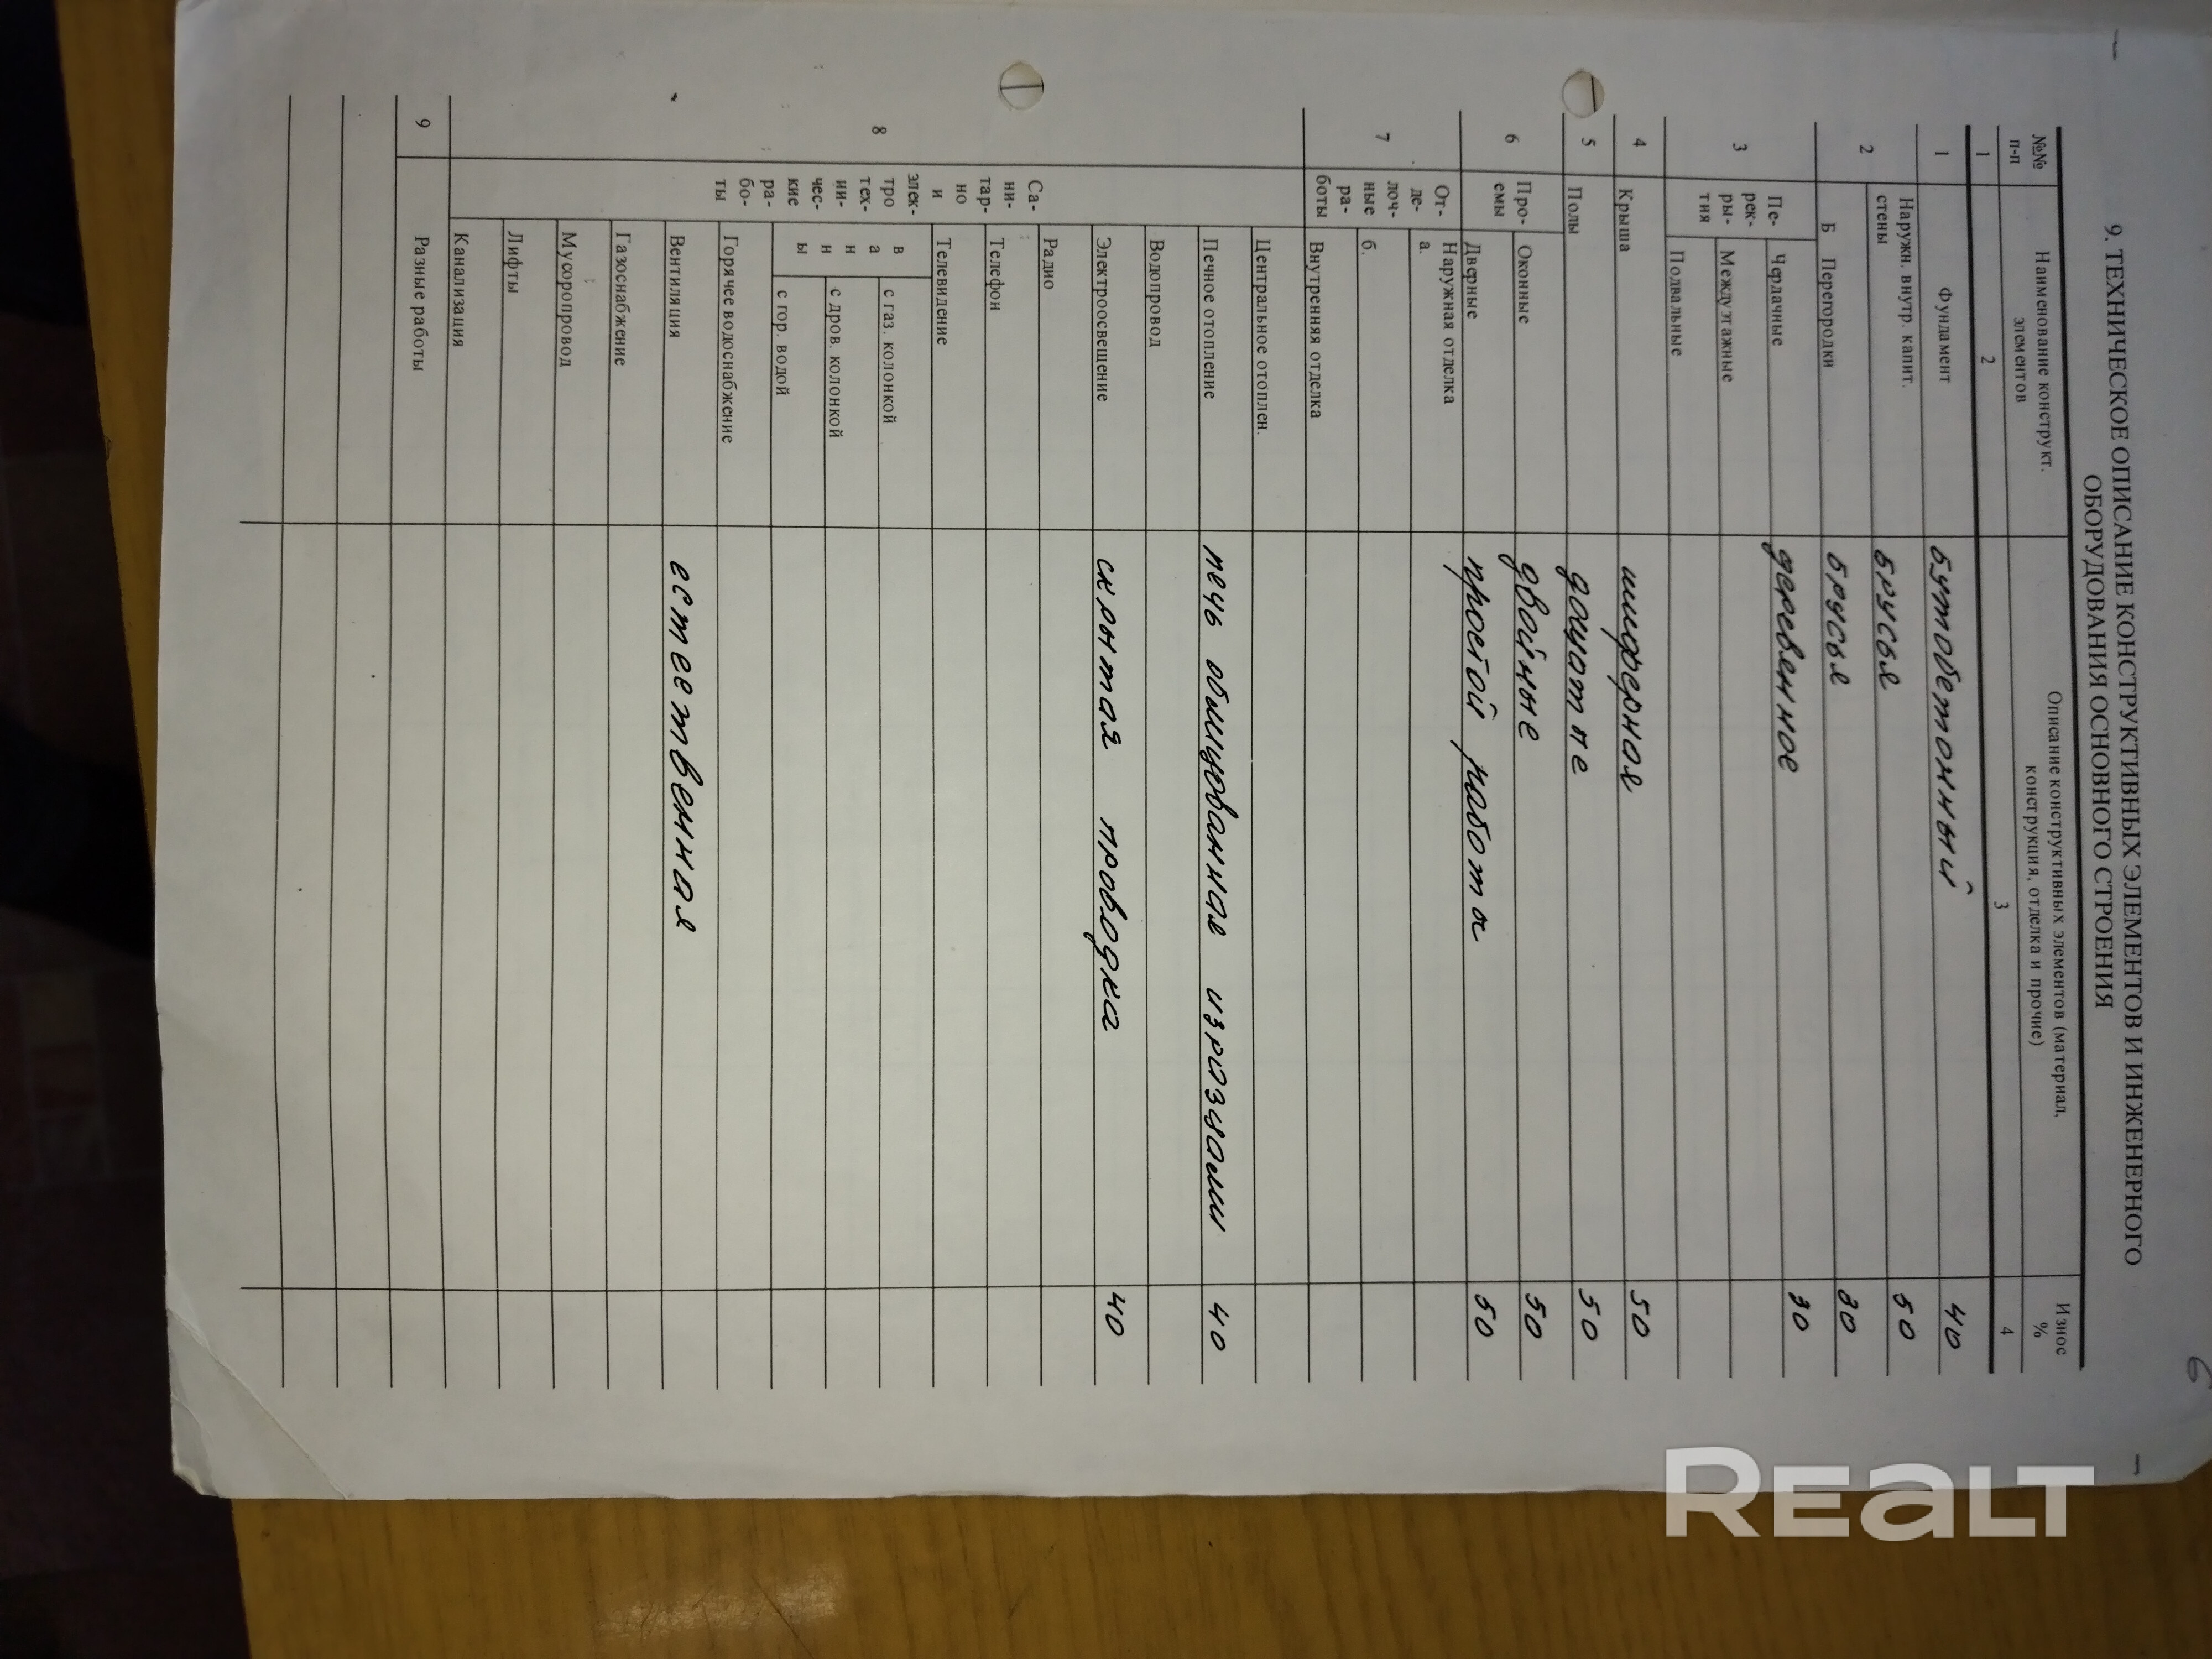 6
9. ТЕХНИЧЕСКОЕ ОПИСАНИЕ КОНСТРУКТИВНЫХ ЭЛЕМЕНТОВ И ИНЖЕНЕРНОГО
ОБОРУДОВАНИЯ ОСНОВНОГО СТРОЕНИЯ
№№ п-п Наименование конструкт. элементов Описание конструктивных элементов (материал, конструкция, отделка и прочие) Износ %
1 2 3 4
1 Фундамент бутобетонный 40
2 Наружн. внутр. капит. стены брусья 50
Б Перегородки брусья 30
3 Пе-рек-ры-тия Чердачные деревенное 30
Междуэтажные
Подвальные
4 Крыша шиферная 50
5 Полы дощатые 50
6 Про-емы Оконные двойные 50
Дверные простой работы 50
7 От-де-лоч-ные ра-боты Наружная отделка
а.
б.
Внутренняя отделка
8 Са-ни-тар-но и элек-тро тех-ни-чес-кие ра-бо-ты Центральное отоплен.
Печное отопление печь облицованная изразцами 40
Водопровод
Электроосвещение скрытая проводка 40
Радио
Телефон
Телевидение
ванны с газ. колонкой
с дров. колонкой
с гор. водой
Горячее водоснабжение
Вентиляция естественная
Газоснабжение
Мусоропровод
Лифты
Канализация
9 Разные работы
REALT